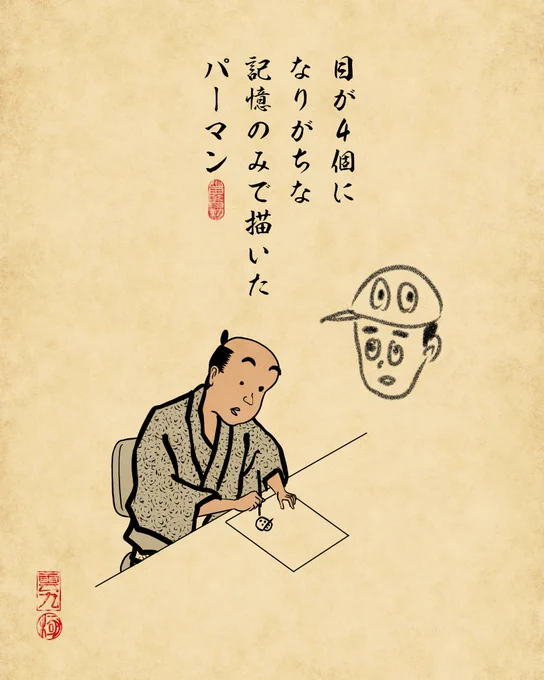 目が4個に
なりがちな
記憶のみで描いた
パーマン